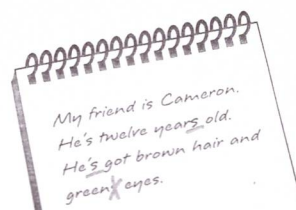 My friend is Cameron.
He's twelve years old.
He's got brown hair and
green eyes.